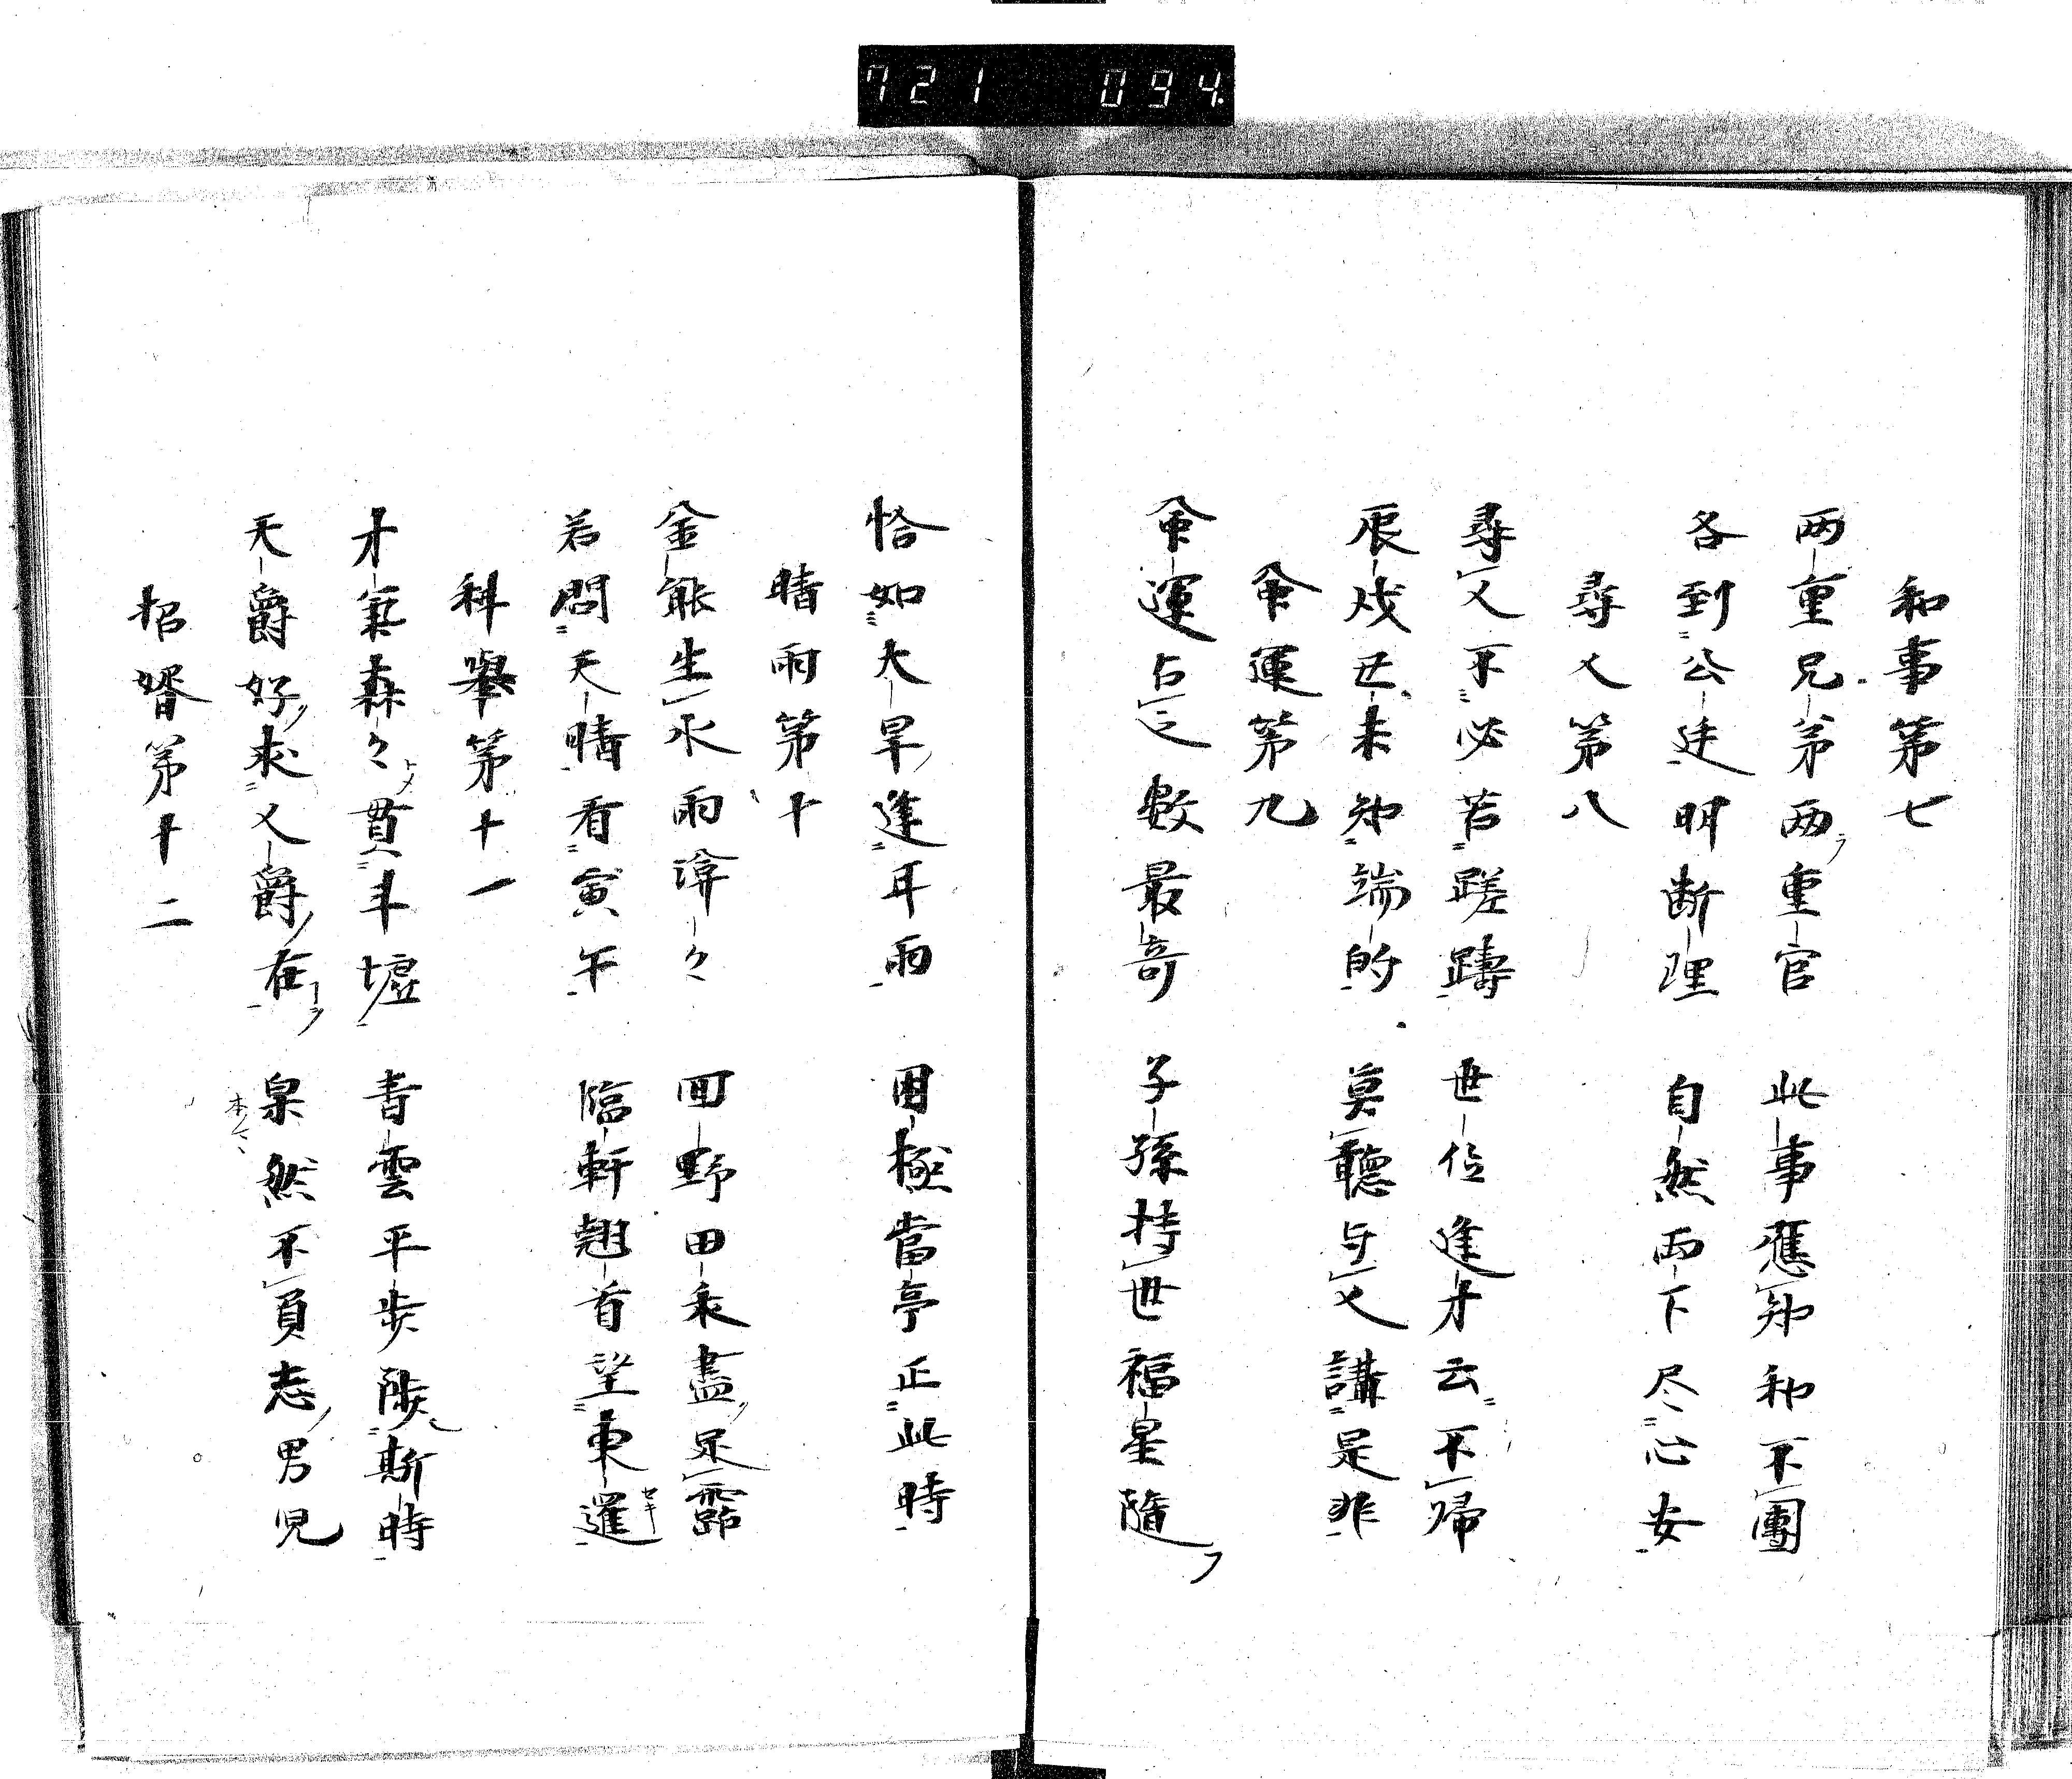 721 094
和事第七
两重兄弟两重官 此事應知和不團
各到公廷明断理 自然両下尽心安
尋人第八
尋人不必苦蹉躊 世位逢才云不帰
辰戌丑未知端的 莫聽与人講是非
命運第九
命運占之數最奇 子孫持世福星隨
恰如大旱逢耳雨 困極當亭正此時
晴雨第十
金能生水雨渰々 四野田禾盡足霑
若問天晴看寅午 臨軒翹首望東暹
科舉第十一
才氣森々貫斗墟 青雲平歩陟斯時
天爵好求人爵在 泉然不負志男児
招婿第十二